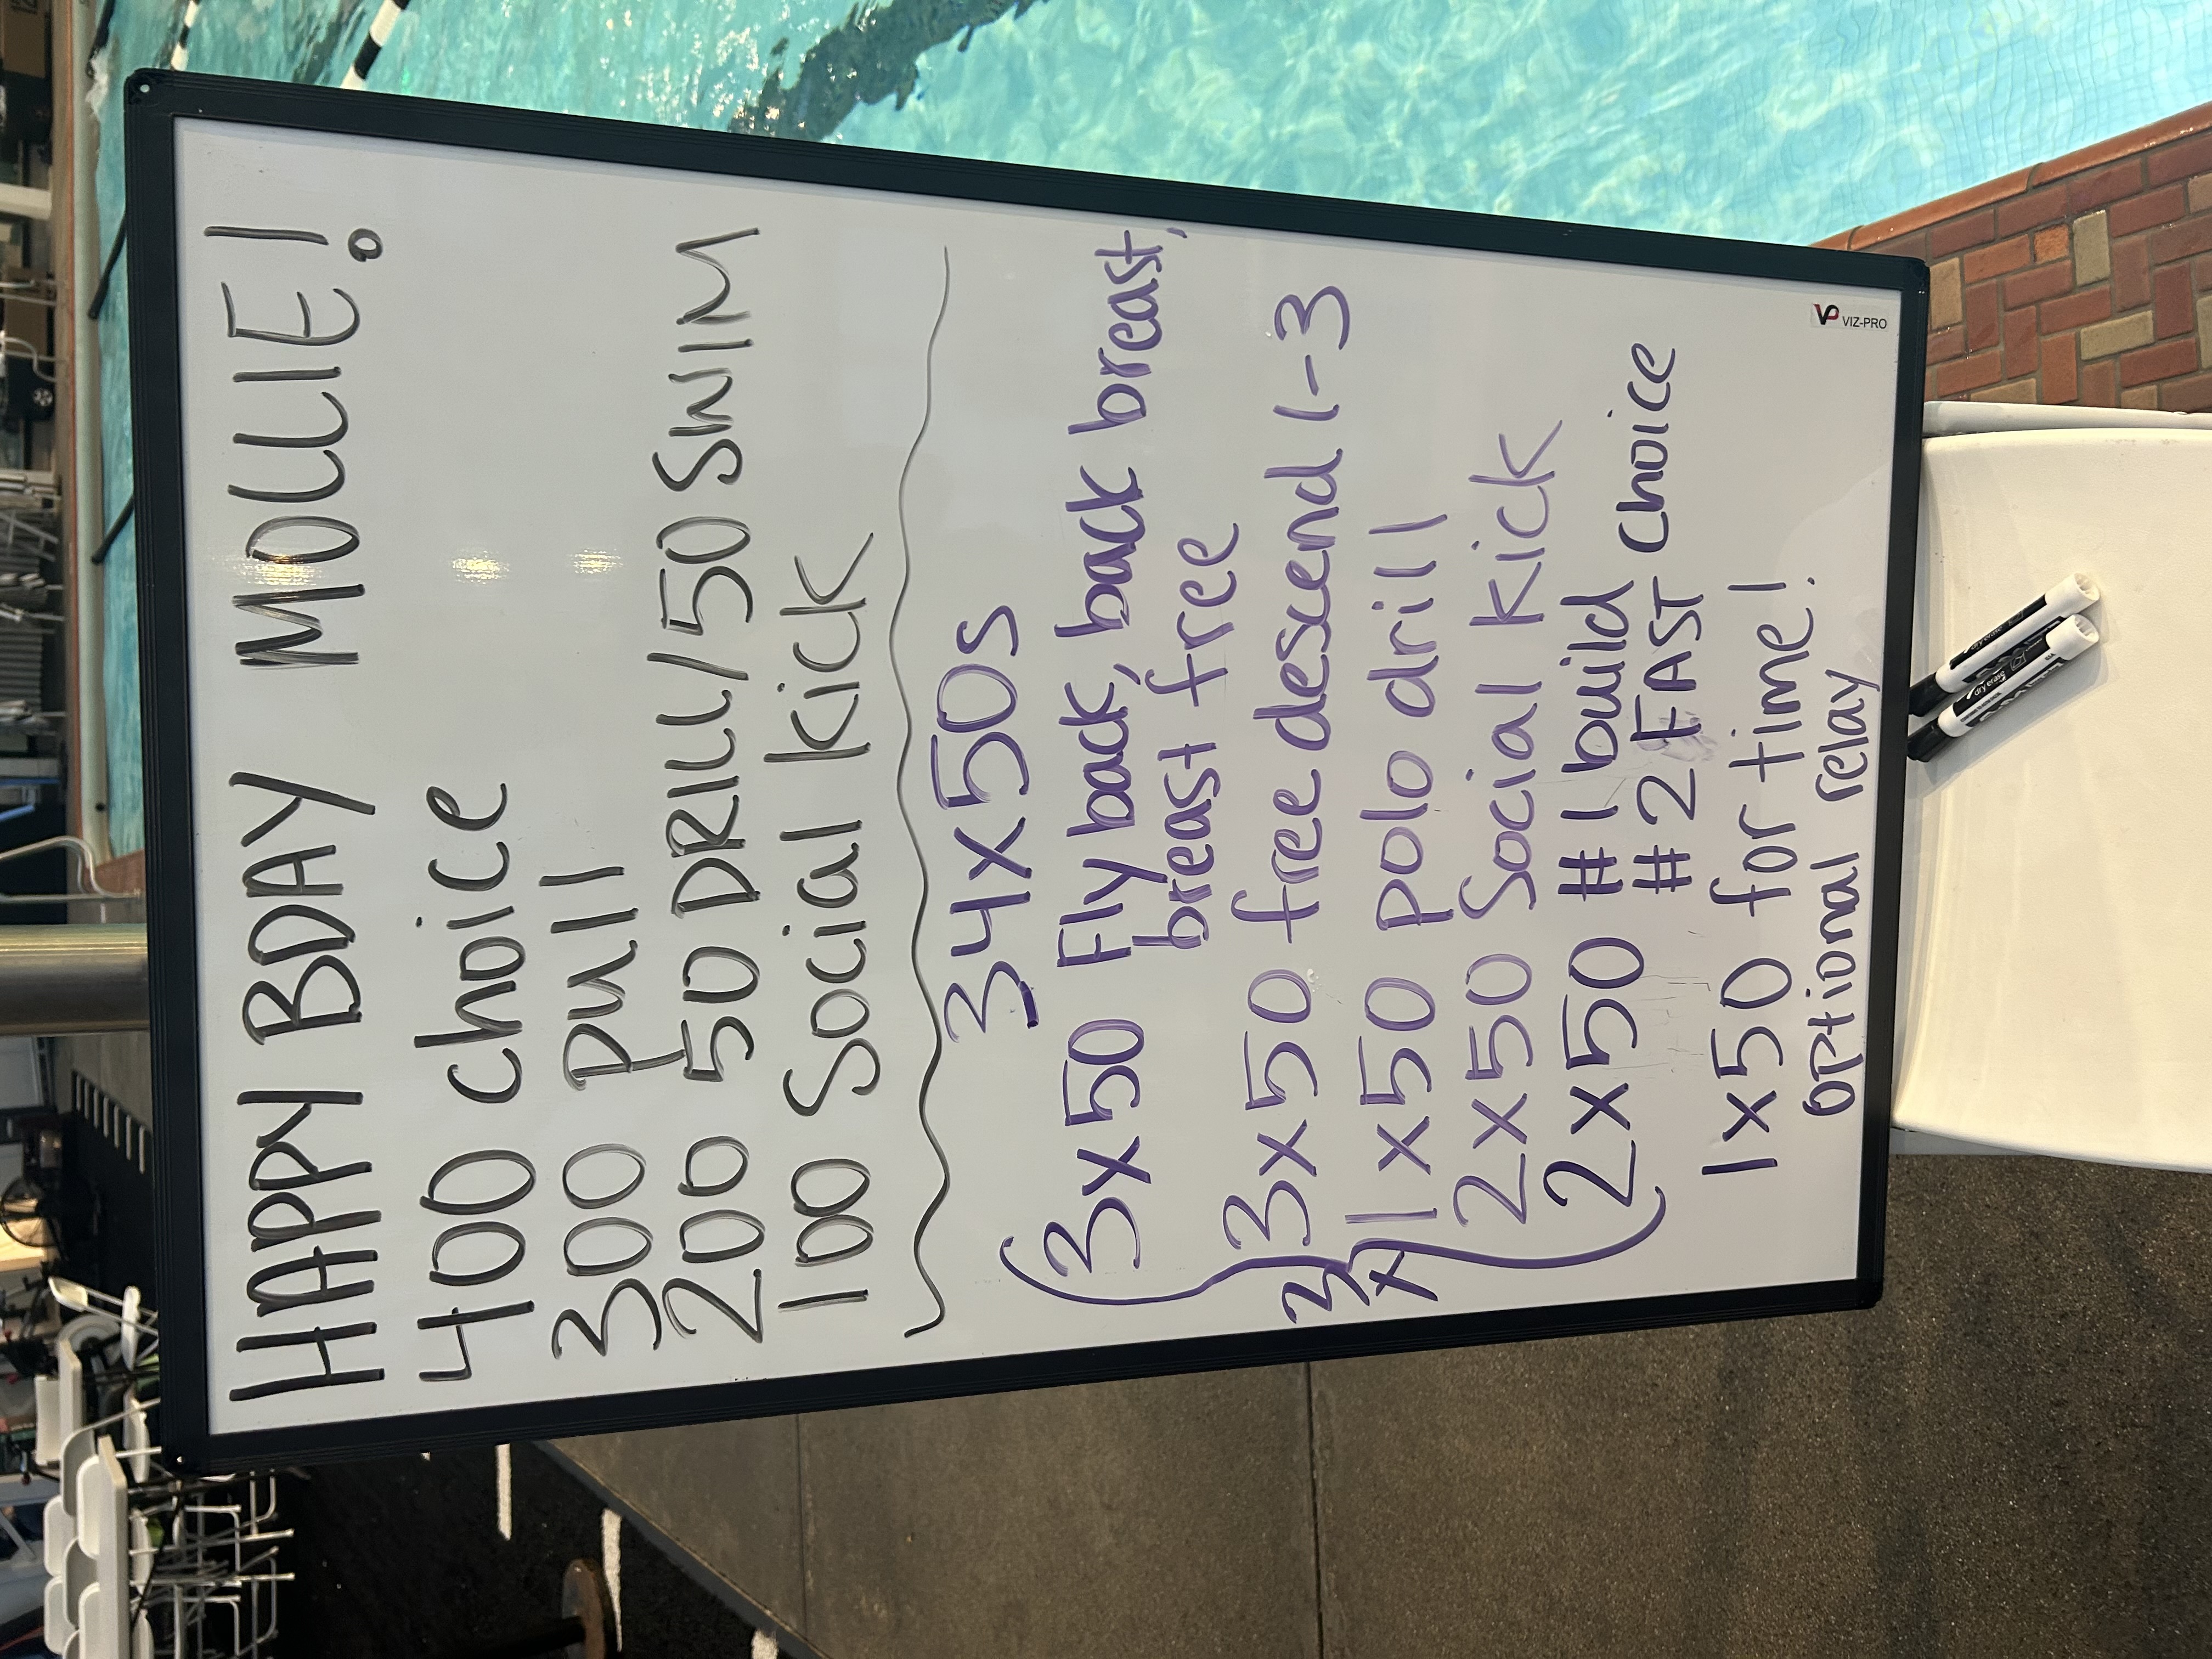 HAPPY BDAY MOLLIE!
400 choice
300 pull
200 50 DRILL/50 SWIM
100 Social kick
34x50s
3x50 Fly back, back breast,
breast free
3x50 free descend 1-3
3x
1x50 polo drill
2x50 Social kick
2x50 #1 build
#2 FAST choice
1x50 for time!
optional relay
VP VIZ-PRO
dry erase